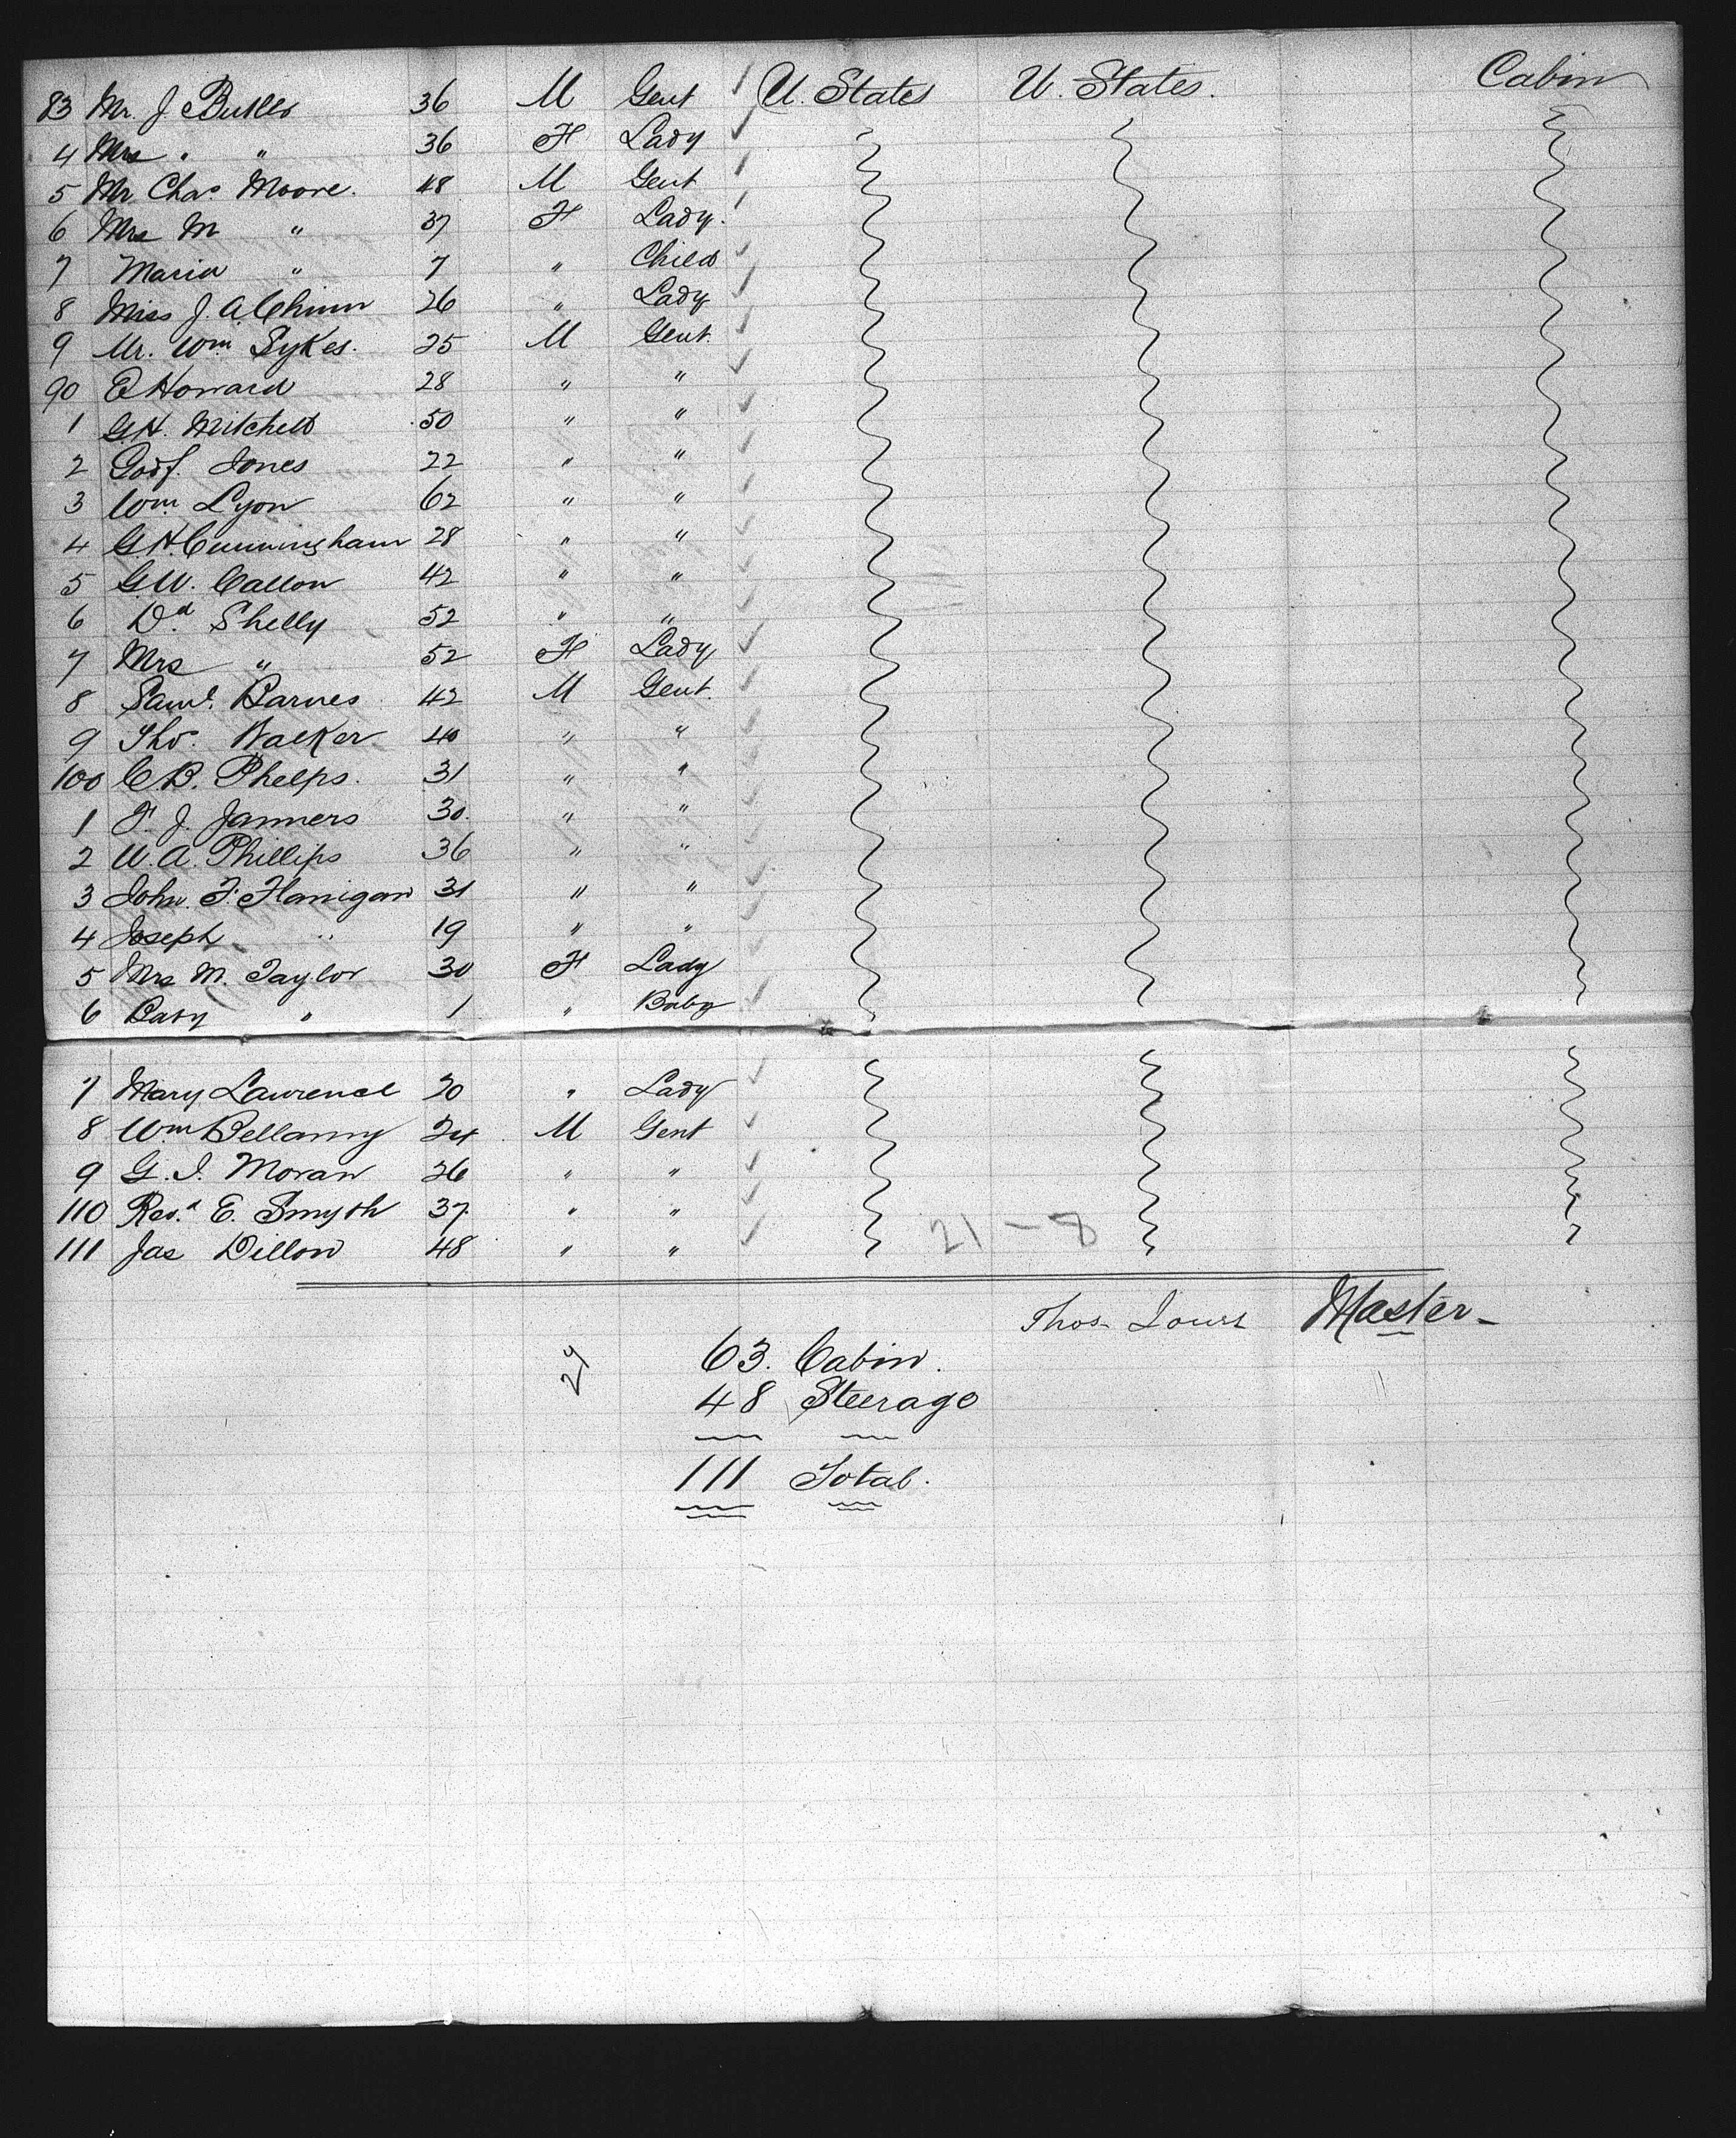 83 Mr. J. Butler 36 M Gent U. States U. States. Cabin
4 Mrs " " 36 F Lady
5 Mr Chas. Moore. 48 M Gent
6 Mrs M " 37 F Lady.
7 Maria " 7 " Child
8 Miss J. A. Chinn 26 " Lady
9 Mr. Wm. Sykes. 25 M Gent.
90 E Howard 28 " "
1 G.H. Mitchell 50 " "
2 Godf. Jones 22 " "
3 Wm. Lyon 62 " "
4 G.H. Cunningham 28 " "
5 G.W. 42 " "
6 Dd. Shelly 52 " "
7 Mrs " 52 F Lady
8 Saml. Barnes 42 M Gent.
9 Tho. Walker 40 " "
100 C.B. Phelps. 31 " "
1 F. J. Janners 30. " "
2 W. A. Phillips 36 " "
3 John. F. Flanigan 31 " "
4 Joseph " 19 " "
5 Mrs M. Taylor 30 F Lady
6 Baby " 1 " Baby
7 Mary Lawrence 20 " Lady
8 Wm Bellamy 24 M Gent
9 G. I. Moran 26 " "
110 Revd. E. Smyth 37 " "
111 Jas Dillon 48 " " 21-8
Thos- Master-
29 63. Cabin.
48 Steerage
111 Total.